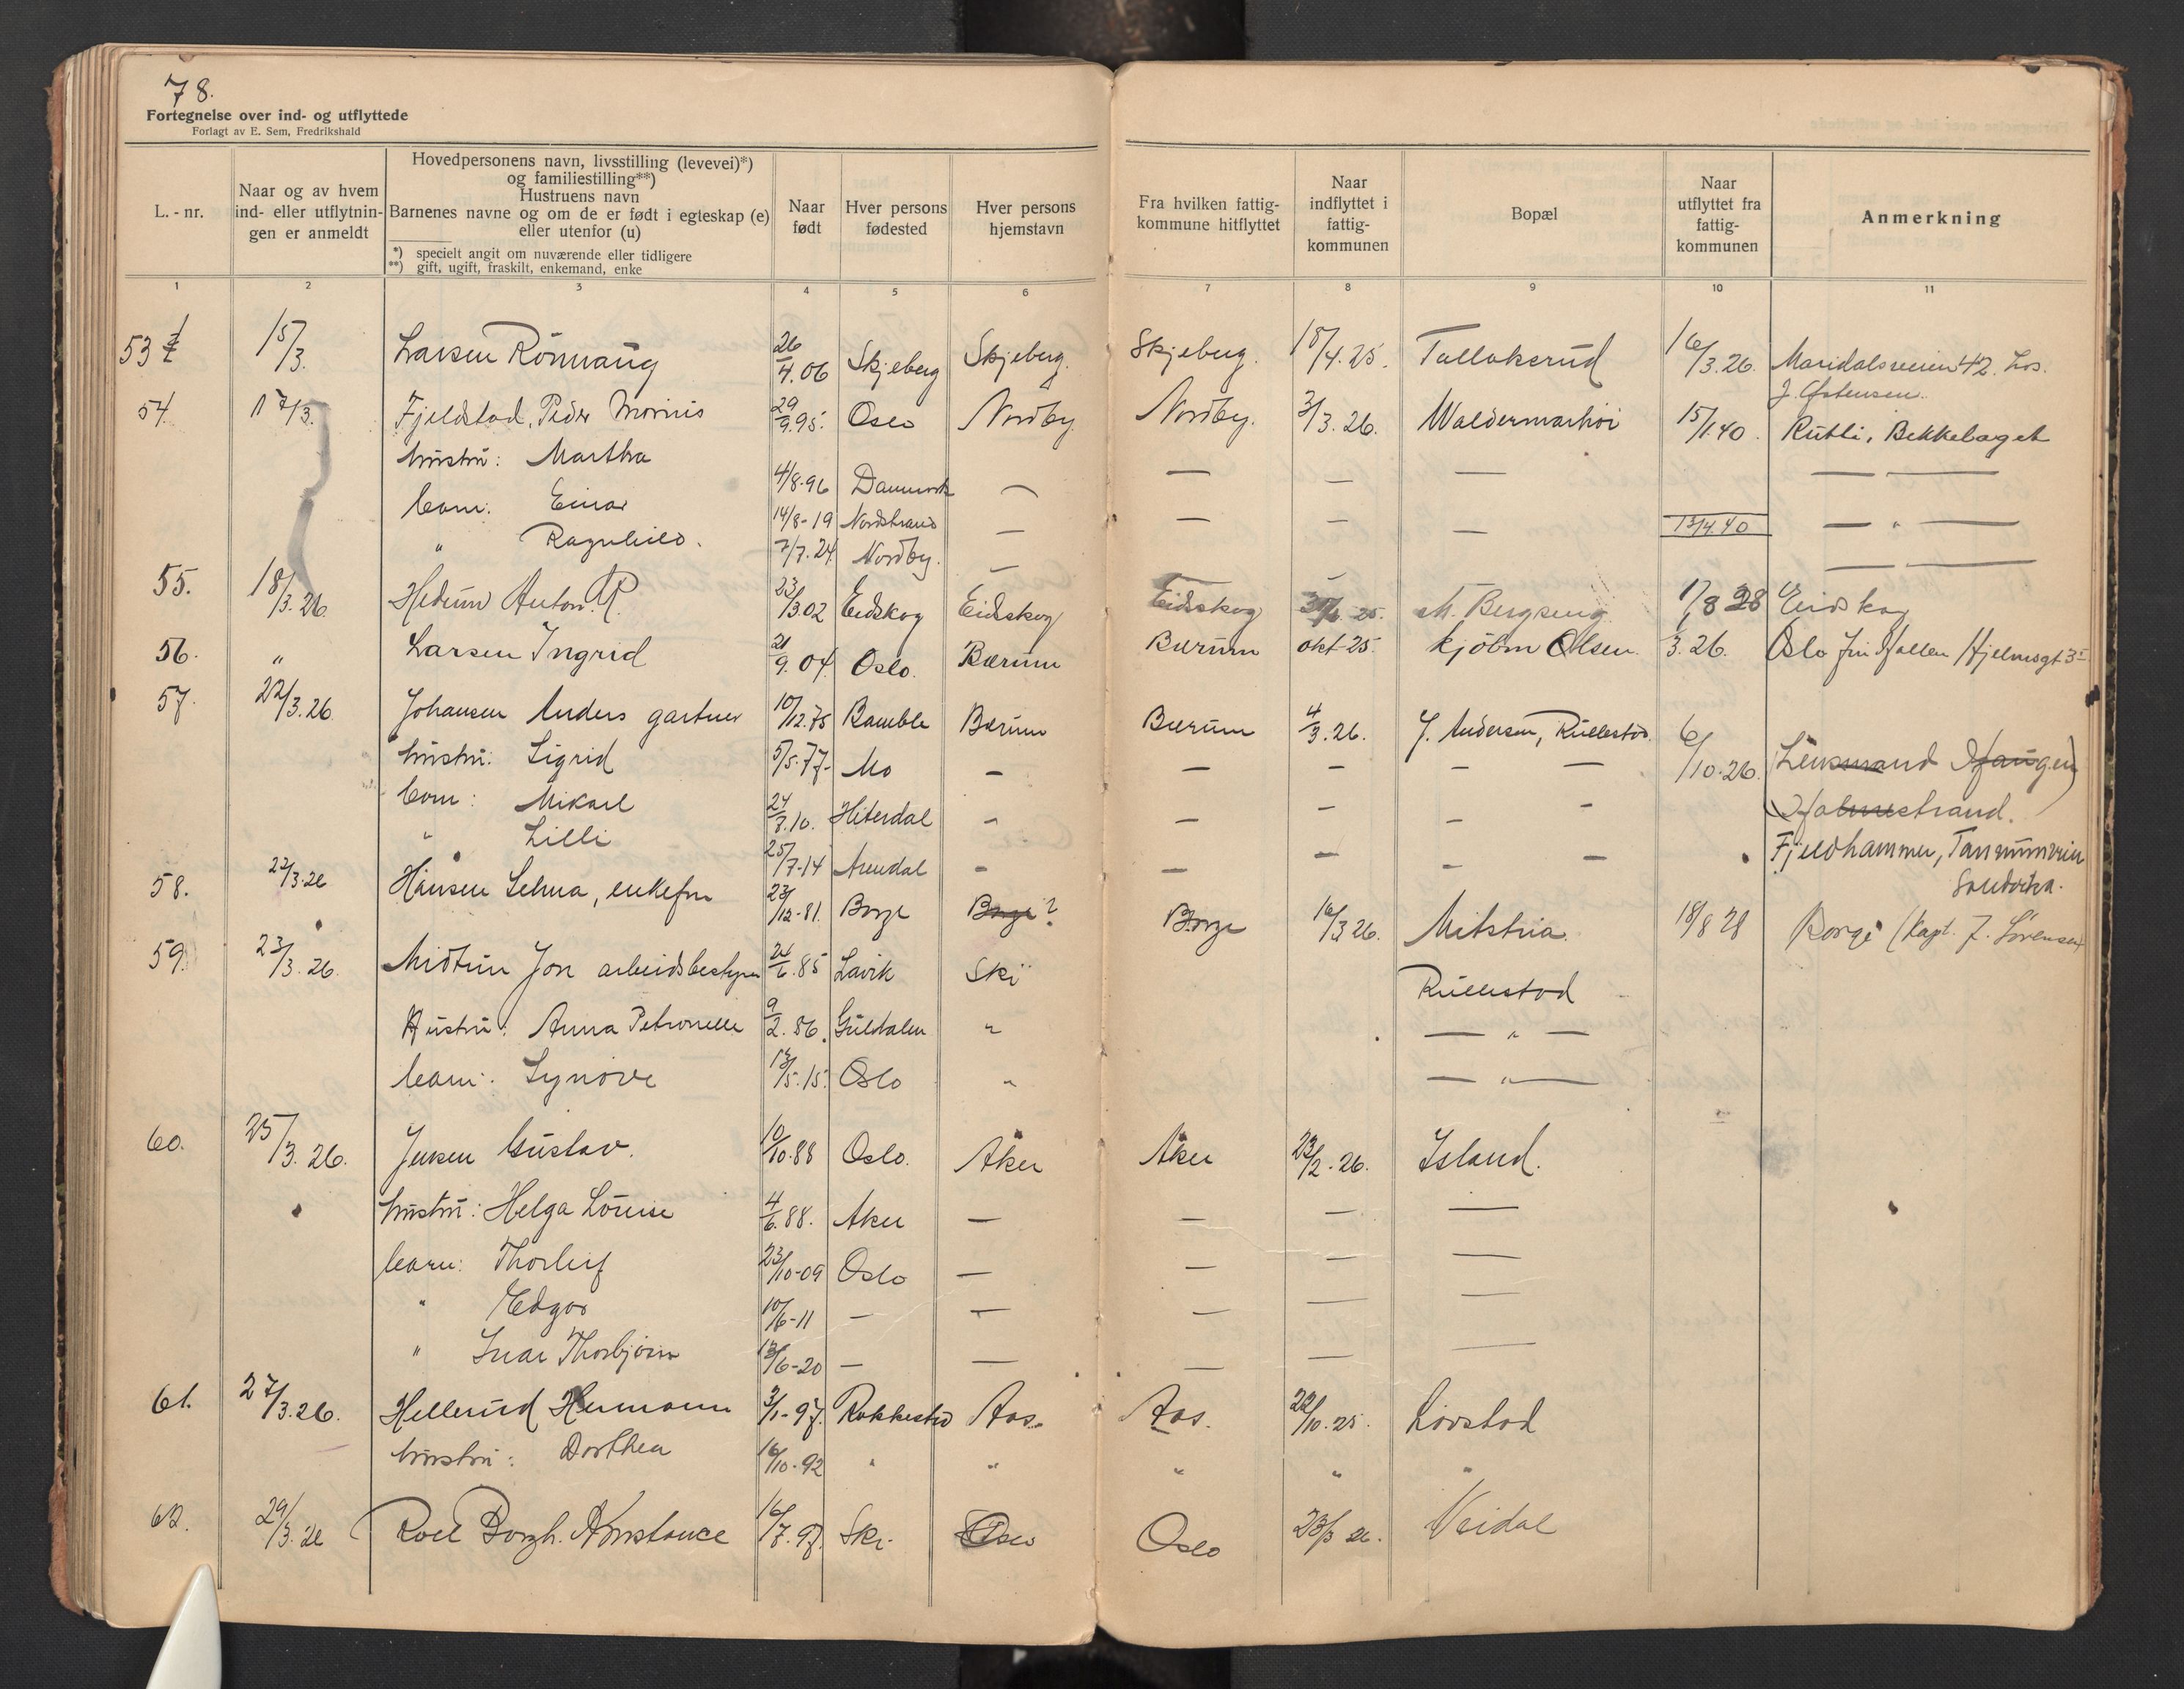 78.
Fortegnelse over ind- og utflyttede
Forlagt av E. Sem, Fredrikshald
L. - nr.
Naar og av hvem
ind- eller utflytnin-
gen er anmeldt
Hovedpersonens navn, livsstilling (levevei)*)
og familiestilling**)
Hustruens navn
Barnenes navne og om de er født i egteskap (e)
eller utenfor (u)
*) specielt angit om nuværende eller tidligere
**) gift, ugift, fraskilt, enkemand, enke
Naar
født
Hver persons
fødested
Hver persons
hjemstavn
Fra hvilken fattig-
kommune hitflyttet
Naar
indflyttet i
fattig-
kommunen
Bopæl
Naar
utflyttet fra
fattig-
kommunen
Anmerkning
1 2 3 4 5 6 7 8 9 10 11
53 15/3. Larsen Rönnaug 26/4.06 Skjeberg Skjeberg. Skjeberg. 15/4.25. Tallakerud 16/3.26. Maridalsveien 42. hos.
J. Østensen.
54. 17/3. Fjeldstad, Peder Marius 29/9.95. Oslo Nordby Nordby. 3/3.26. Waldermarhöi 15/1.40. Rütli, Bekkelaget
hustru: Martha 4/8-96 Danmark — — — — — —
barn: Einar 14/8-19 Nordstrand — — — — 13/4.40 — " —
" Ragnhild. 7/7.24 Nordby. — — — — —
55. 18/3.26. Hedum Anton R. 23/3 02 Eidskog Eidskog Eidskog 25. M. Bergseng. 1/8 28 Eidskog
56. " Larsen Ingrid 21/9.04. Oslo. Bærum Bærum okt-25. Kjöbm Olsen. 3.26. Oslo Hjelmsgt 3
57. 22/3.26. Johansen Anders gartner 10/12.75 Bamble Bærum Bærum 4/3.26. J. Andersen, Rullestad. 6/10.26. (Lensmand Haugen)
hustru: Sigrid 5/5.77- Mo — — — — —
barn: Mikael 24/8.10. Hiterdal - — — — - Holmestrand.
" Lilli 25/7-14 Arendal - — — — — Fjeldhammer, Tanumveien
Sandvika.
58. 22/3.26 Hansen Selma, enkefru 23/12-81. Borge Borge? Borge 16/3 26. Mitstua. 18/8 28 Borge (Kapt. J. Sörensen)
59. 23/3.26. Midtun Jon arbeidsbestyrer 24/6.85 Lavik Ski Rullestad
Hustru: Anna Petronelle 9/2.86. Guldalen " — " —
barn: Synöve 13/5.15. Oslo " — " —
60. 25/3.26. Jensen Gustav. 10/10.88 Oslo. Aker Aker 23/2.26. Island.
hustru: Helga Louise 4/6.88. Aker — — — —
barn: Thorleif 23/10-09 Oslo — — — —
" Edgar 10/6-11 — — — — —
" Ivar Thorbjörn 13/6-20 — — — — —
61. 27/3.26. Hellerud Hermann 3/1-97. Rakkestad Aas. Aas. 22/10.25. Lövstad
hustru: Dorthea 16/10-92 " " " " "
62. 29/3.26 Roel Borgh. Konstance 16/7.97. Ski. Oslo Oslo 23/3 26. Veidal